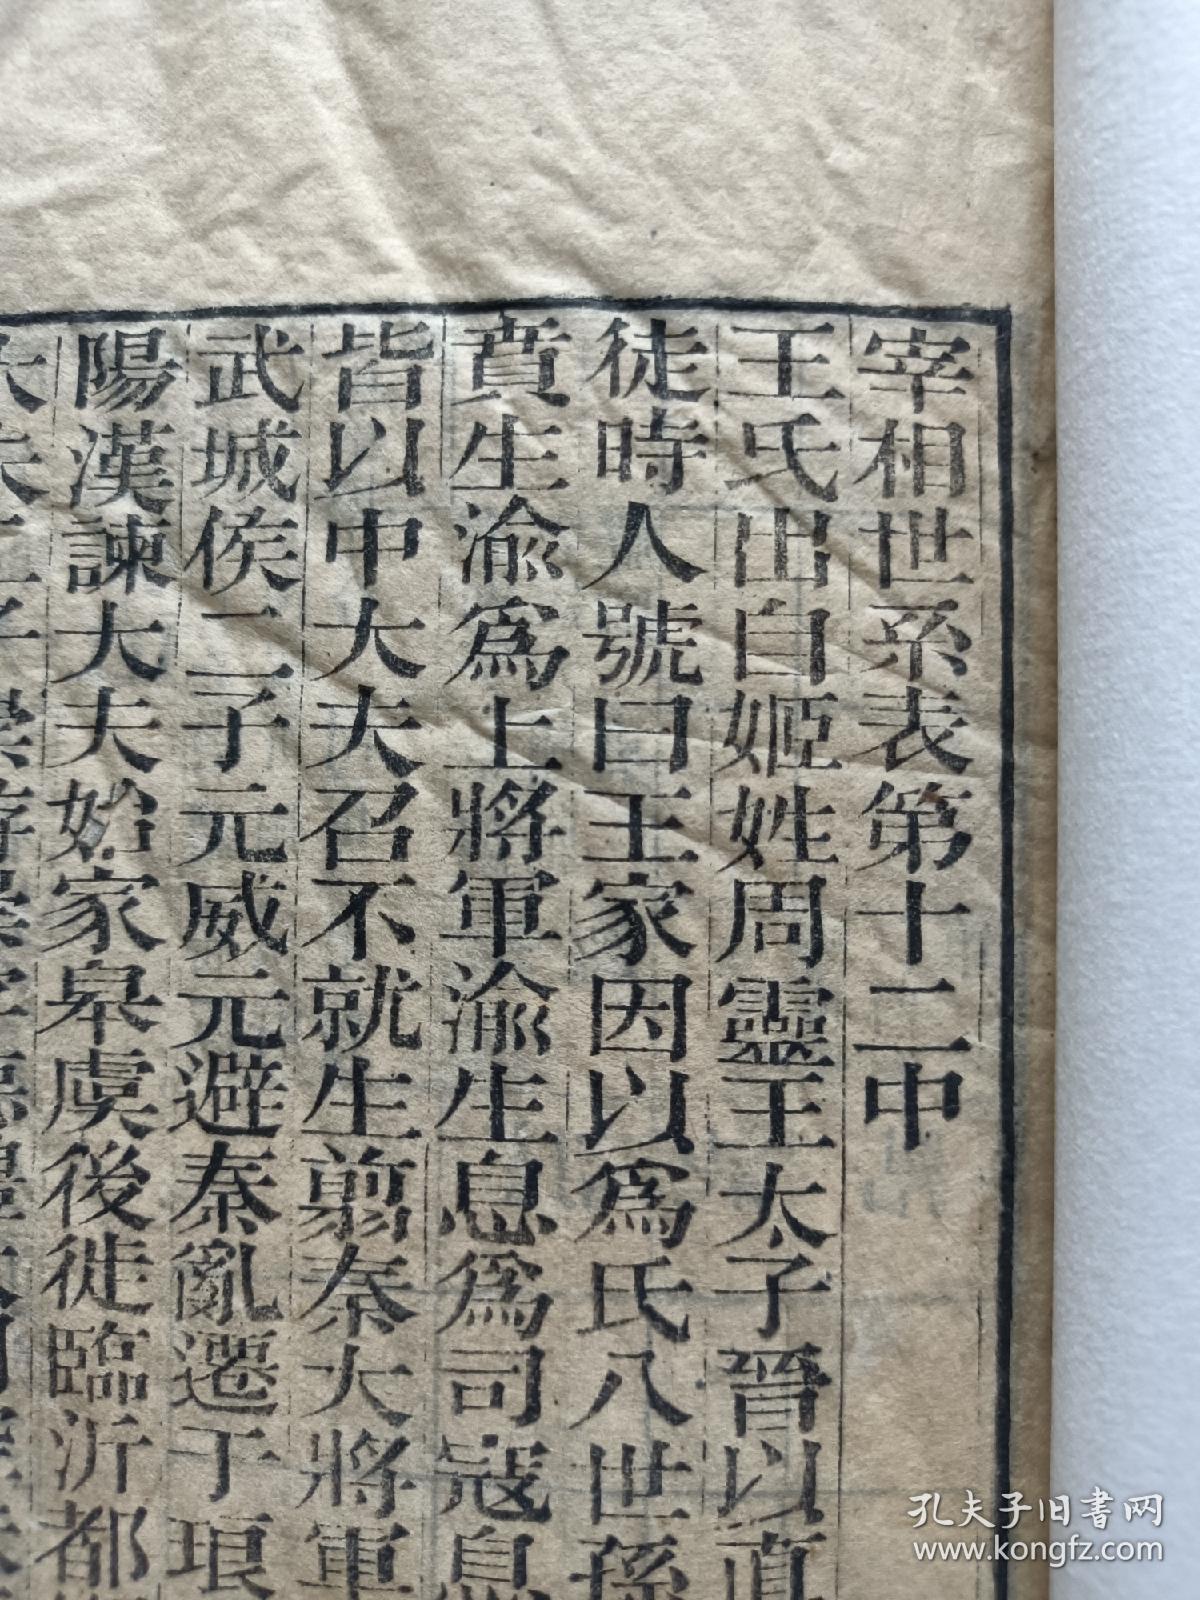 宰相世系表第十二中
王氏出自姬姓周靈王太子晉以直
徒時人號曰王家因以爲氏八世孫
賁生渝爲上將軍渝生息爲司寇息
皆以中大夫召不就生翦秦大將軍
武城侯二子元威元避秦亂遷于琅
陽漢諫大夫始家皋虞後徙臨沂都
孔夫子旧書网
www.kongfz.com